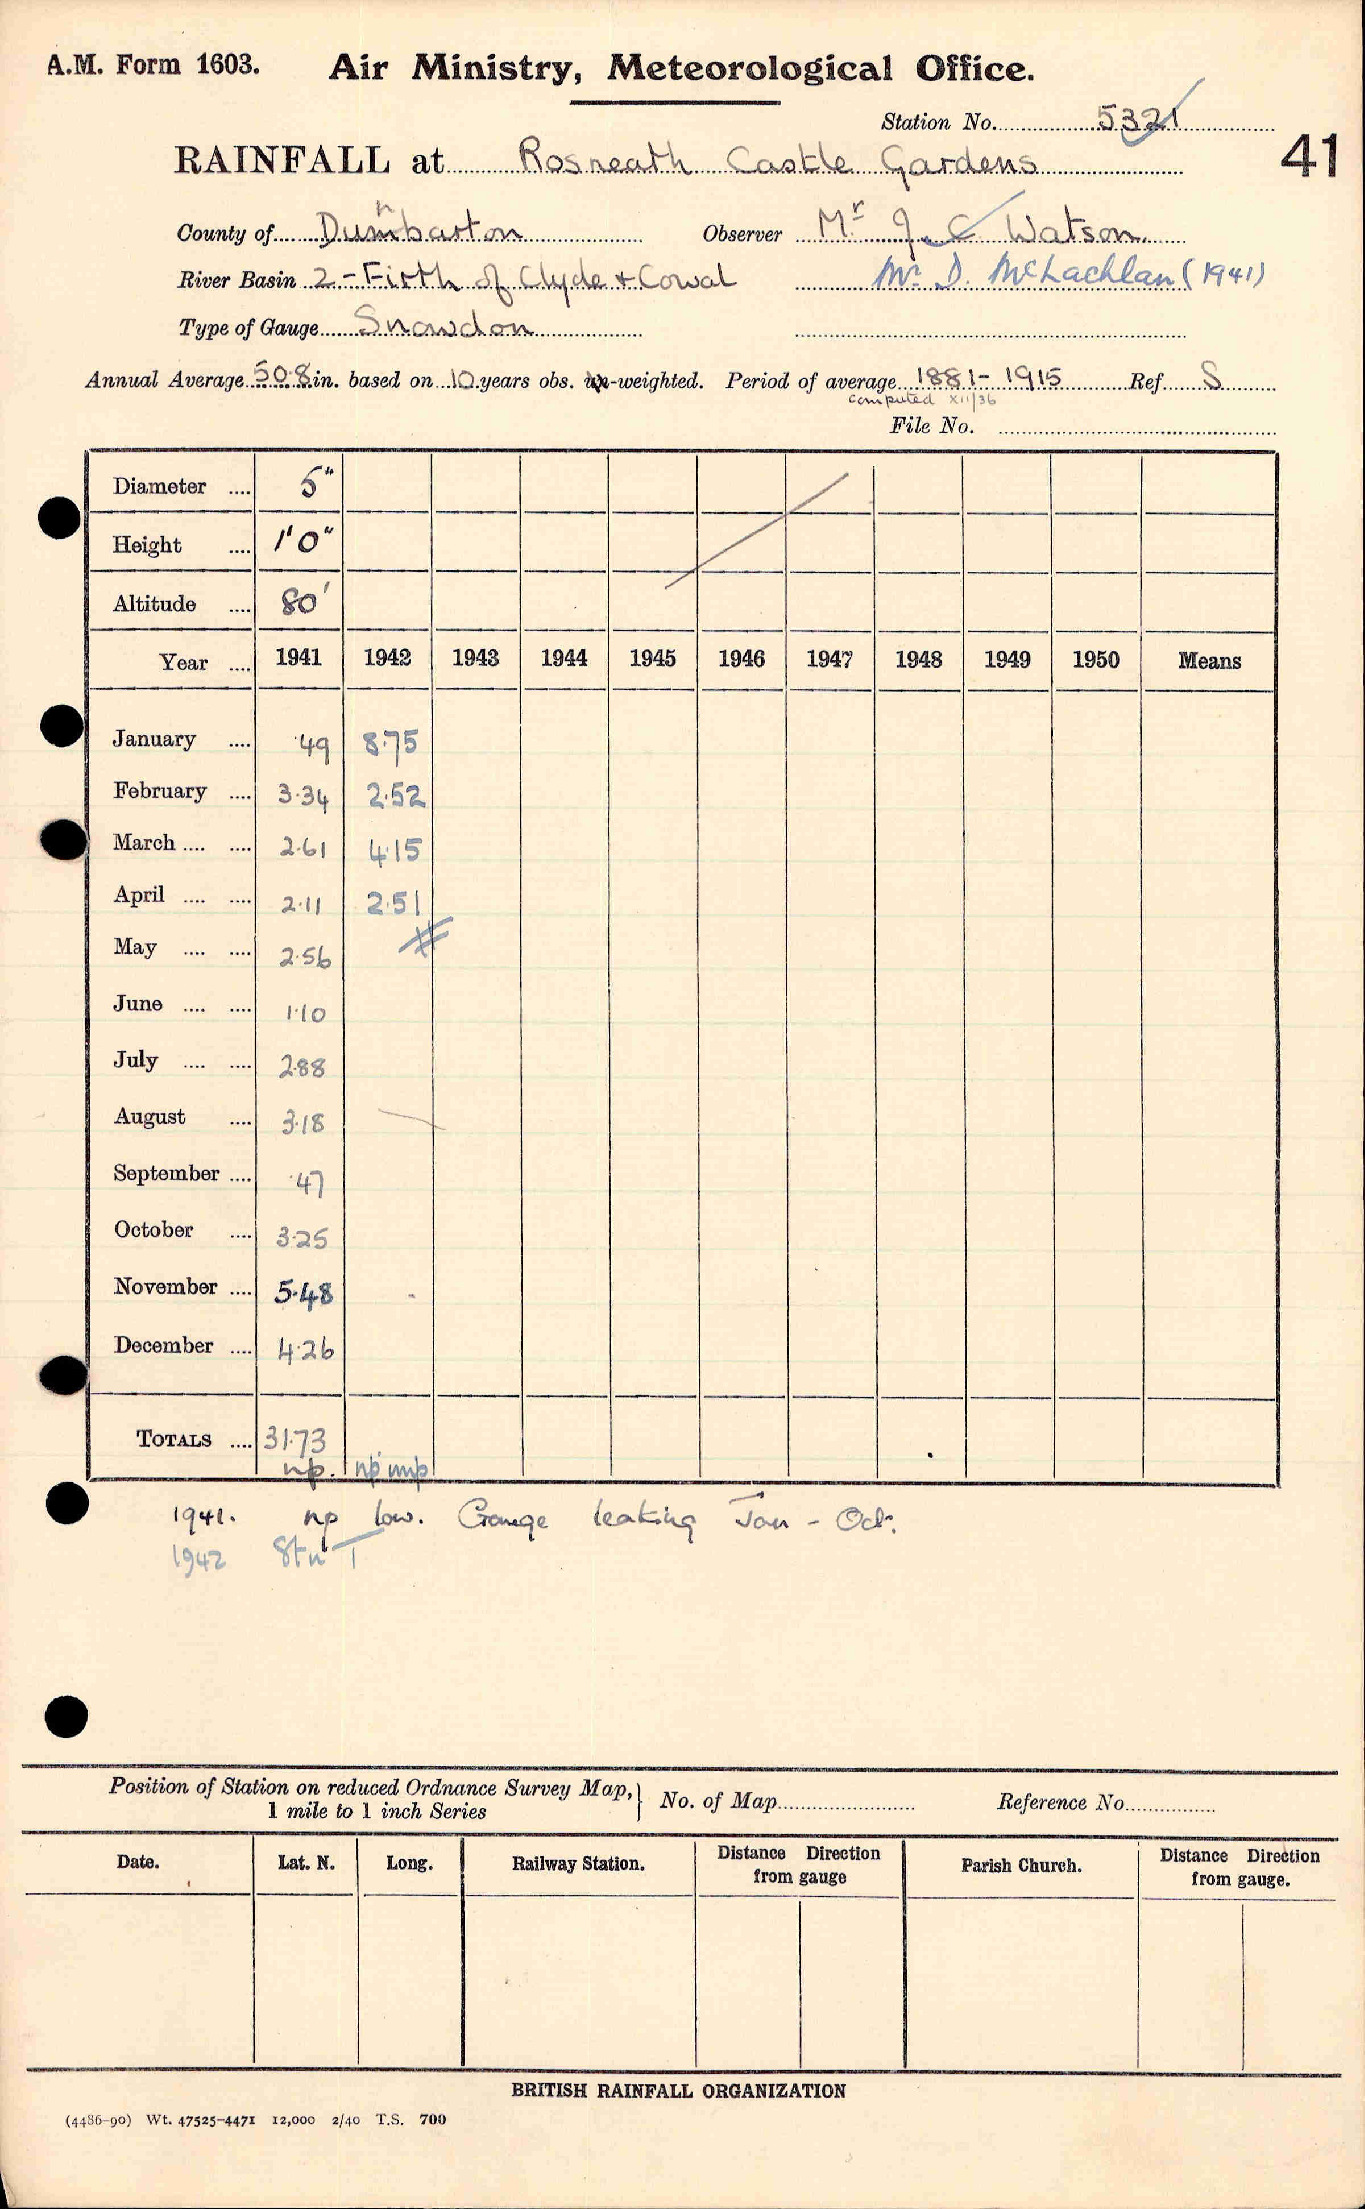 A.M. Form 1603. Air Ministry, Meteorological Office.
Station No. 5321
RAINFALL at Rosneath Castle Gardens 41
County of Dumbarton Observer Mr J C Watson.
n
River Basin 2 - Firth of Clyde + Cowal Mr. D. McLachlan (1941)
Type of Gauge Snowdon
Annual Average 50.8 in. based on 10 years obs. un-weighted. Period of average 1881 - 1915 Ref S
computed XII/36
File No.
Diameter .... 5"
Height .... 1'0"
Altitude .... 80'
Year .... 1941 1942 1943 1944 1945 1946 1947 1948 1949 1950 Means
January .... .49 8.75
February .... 3.34 2.52
March .... .... 2.61 4.15
April .... .... 2.11 2.51
May .... .... 2.56
June .... .... 1.10
July .... .... 2.88
August .... 3.18
September .... .47
October .... 3.25
November .... 5.48
December .... 4.26
TOTALS .... 31.73
np. np mp
1941. np low. Gauge leaking Jan - Oct.
1942 Stn T
Position of Station on reduced Ordnance Survey Map, } No. of Map Reference No
1 mile to 1 inch Series
Date. Lat. N. Long. Railway Station. Distance Direction from gauge Parish Church. Distance Direction from gauge.
BRITISH RAINFALL ORGANIZATION
(4486-90) Wt. 47525-4471 12,000 2/40 T.S. 700